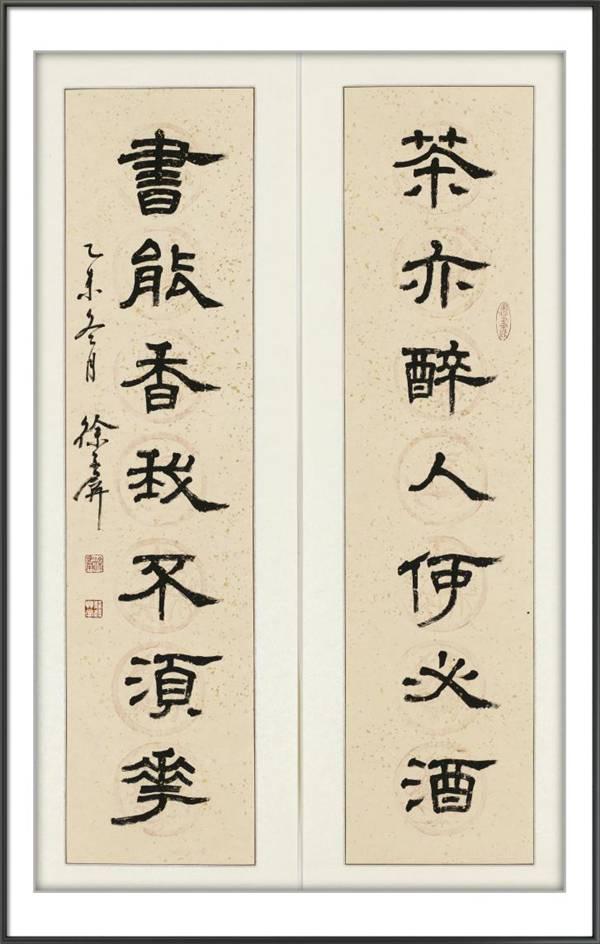 茶亦醉人何必酒
書能香我不須花
乙未冬月 徐玉屏